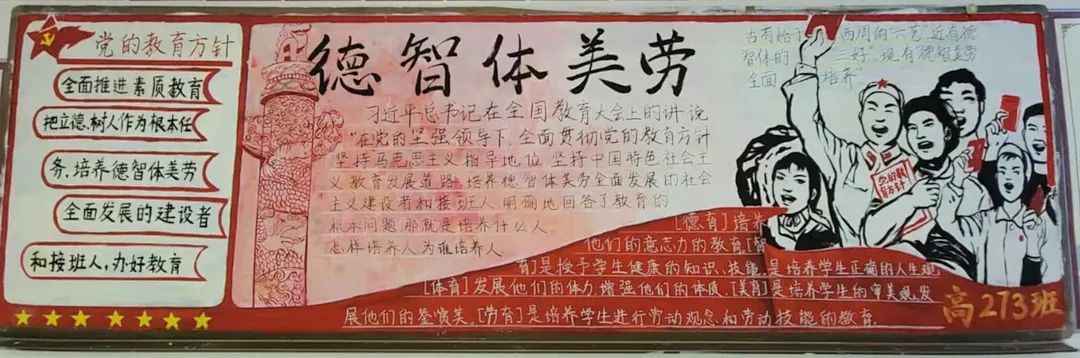 党的教育方针
全面推进素质教育
把立德、树人作为根本任
务,培养德智体美劳
全面发展的建设者
和接班人,办好教育
德智体美劳
习近平总书记在全国教育大会上的讲说
“在党的坚强领导下,全面贯彻党的教育方针
坚持马克思主义指导地位,坚持中国特色社会主
义教育发展道路,培养德智体美劳全面发展的社会
主义建设者和接班人,明确地回答了教育的
根本问题,那就是培养什么人
怎样培养人为谁培养人
古有始于 两周的“六艺”近有德
智体的 三好”现有德智美劳
全面 培养”
党的教
育方针
[德育]培养
他们的意志力的教育,[智
育]是授予学生健康的知识、技能,是培养学生正确的人生观
[体育]发展他们的体力,增强他们的体质,[美育]是培养学生的审美观,发
展他们的鉴赏美,[劳育]是培养学生进行劳动观念和劳动技能的教育.
高273班